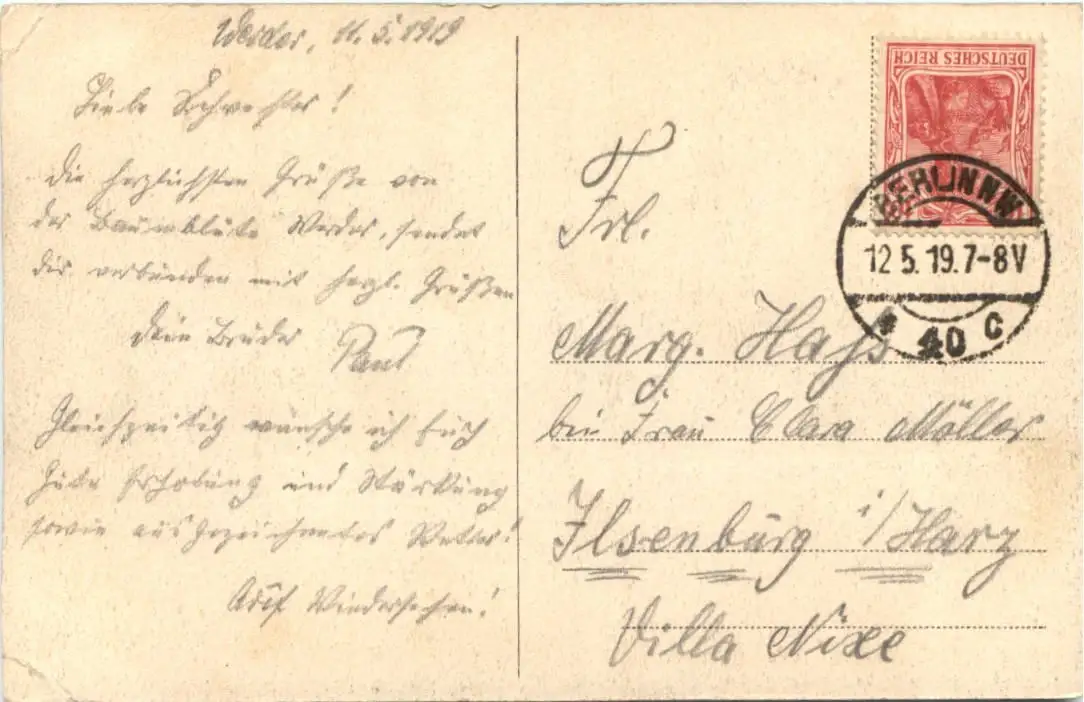 Werder, 11.5.1919
Liebe Schwester!
Die herzlichsten Grüße von
der Baumblüte Werder, sendet
dir verbunden mit herzl. Grüßen
dein Bruder Paul
Gleichzeitig wünsche ich Euch
gute Erholung und Stärkung
sowie ausgezeichnetes Wetter!
Auf Wiedersehen!
DEUTSCHES REICH
BERLIN NW
12.5.19.7-8V
* 40 c
Frl.
Marg. Hays
bei Frau Clara Möller
Ilsenburg i/Harz
Villa Nixe